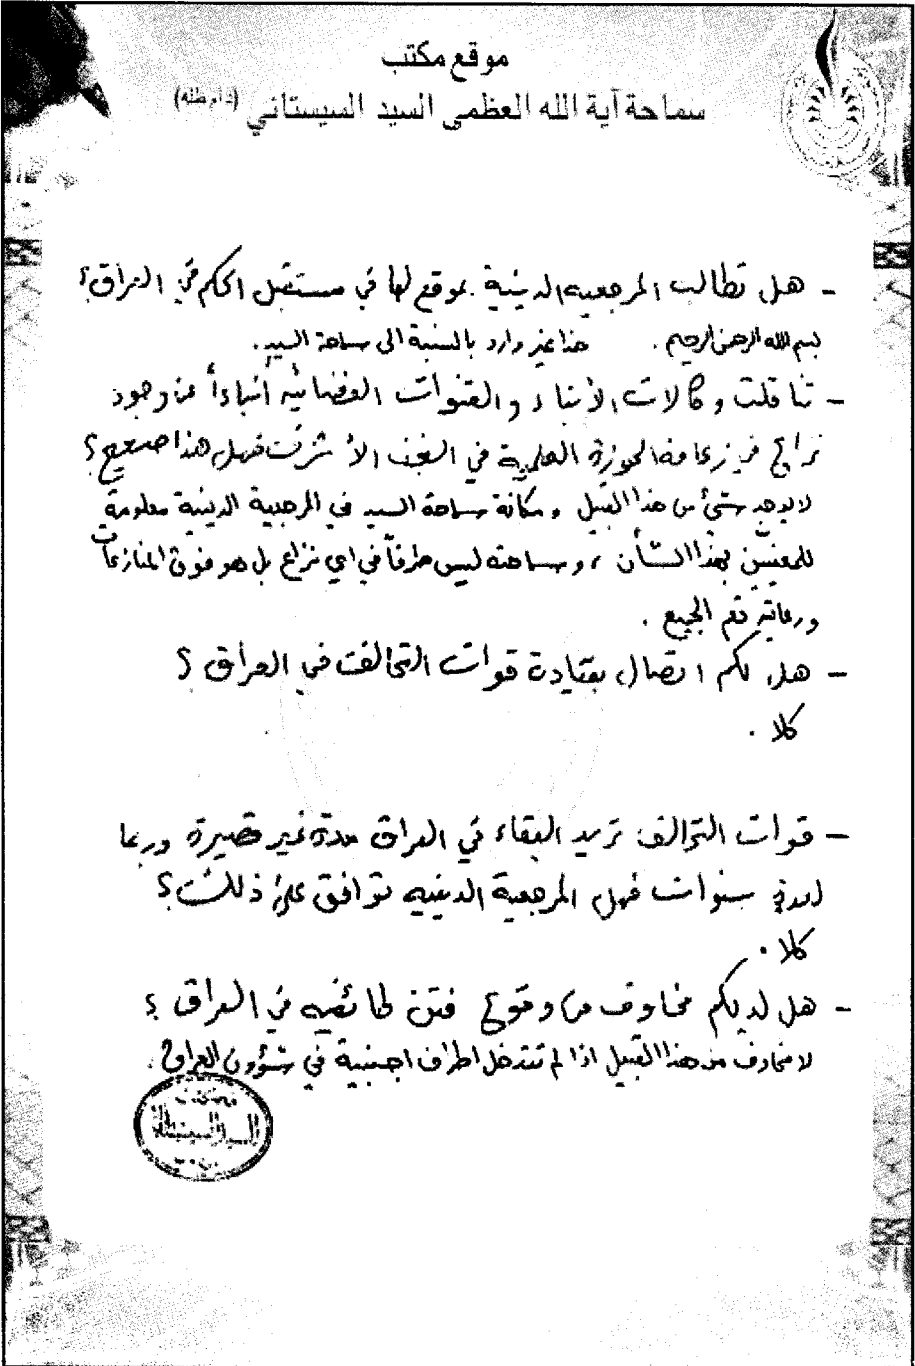 موقع مكتب
سماحة آية الله العظمى السيد السيستاني (دام ظله)
- هل تطالب المرجعية الدينية بموقع لها في مستقبل الحكم في العراق؟
بسم الله الرحمن الرحيم . هذا غير وارد بالنسبة الى سماحة السيد .
- تناقلت وكالات الأنباء والقنوات الفضائيه أنباءاً عن وجود
نزاع في زعامة الحوزة العلمية في النجف الأشرف فهل هذا صحيح؟
لا يوجد شيء من هذا القبيل ، ومكانة سماحة السيد في المرجعية الدينية معلومة
للمعنيّين بهذا الشأن ، وسماحته ليس طرفاً في اي نزاع بل هو فوق المنازعات
ورعايته تعم الجميع .
- هل لكم اتصال بقيادة قوات التحالف في العراق ؟
كلا .
- قوات التحالف تريد البقاء في العراق مدة غير قصيرة وربما
لعدة سنوات فهل المرجعية الدينيه توافق على ذلك؟
كلا .
- هل لديكم مخاوف من وقوع فتن طائفيه في العراق ؟
لا مخاوف من هذا القبيل اذا لم تتدخل اطراف اجنبية في شؤون العراق .
مكتب
السيد السيستاني